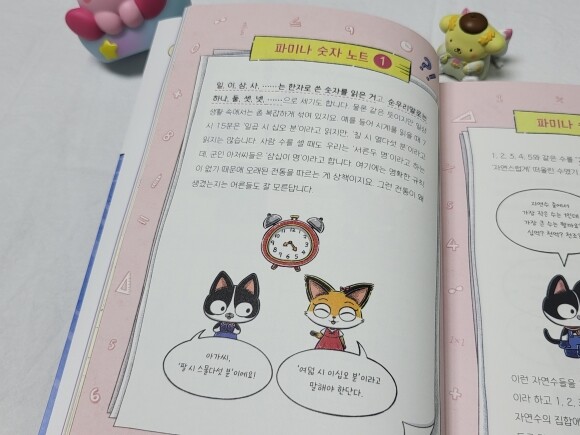 파미나 숫자 노트 1
일, 이, 삼, 사, ……는 한자로 쓴 숫자를 읽은 거고, 순우리말로는
하나, 둘, 셋, 넷, ……으로 세기도 합니다. 물론 같은 뜻이지만 일상
생활 속에서는 좀 복잡하게 섞여 있지요. 예를 들어 시계를 읽을 때 7
시 15분은 '일곱 시 십오 분'이라고 읽지만, '칠 시 열다섯 분'이라고
읽지는 않습니다. 사람 수를 셀 때도 우리는 '서른두 명'이라고 하는
데, 군인 아저씨들은 '삼십이 명'이라고 합니다. 여기에는 명확한 규칙
이 없기 때문에 오래된 전통을 따르는 게 상책이지요. 그런 전통이 왜
생겼는지는 어른들도 잘 모른답니다.
아가씨,
'팔 시 스물다섯 분'이에요!
'여덟 시 이십오 분'이라고
말해야 한단다.
파미나
1, 2, 3, 4, 5와 같은 수를
'자연스럽게' 떠올린 수
자연수 중에서
가장 작은 수는 1인데
가장 큰 수는
이런 자연수들을
이라 하고 1, 2, 3
자연수의 집합에